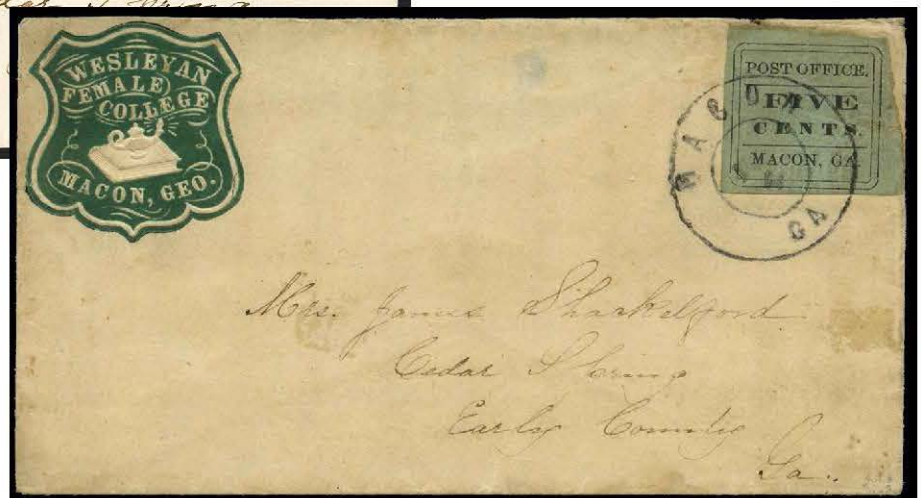 WESLEYAN
FEMALE
COLLEGE
MACON, GEO.
POST OFFICE.
FIVE
CENTS.
MACON, GA.
MACON
GA
Mrs. James Sharkelford
Cedar Spring
Early County
Ga..